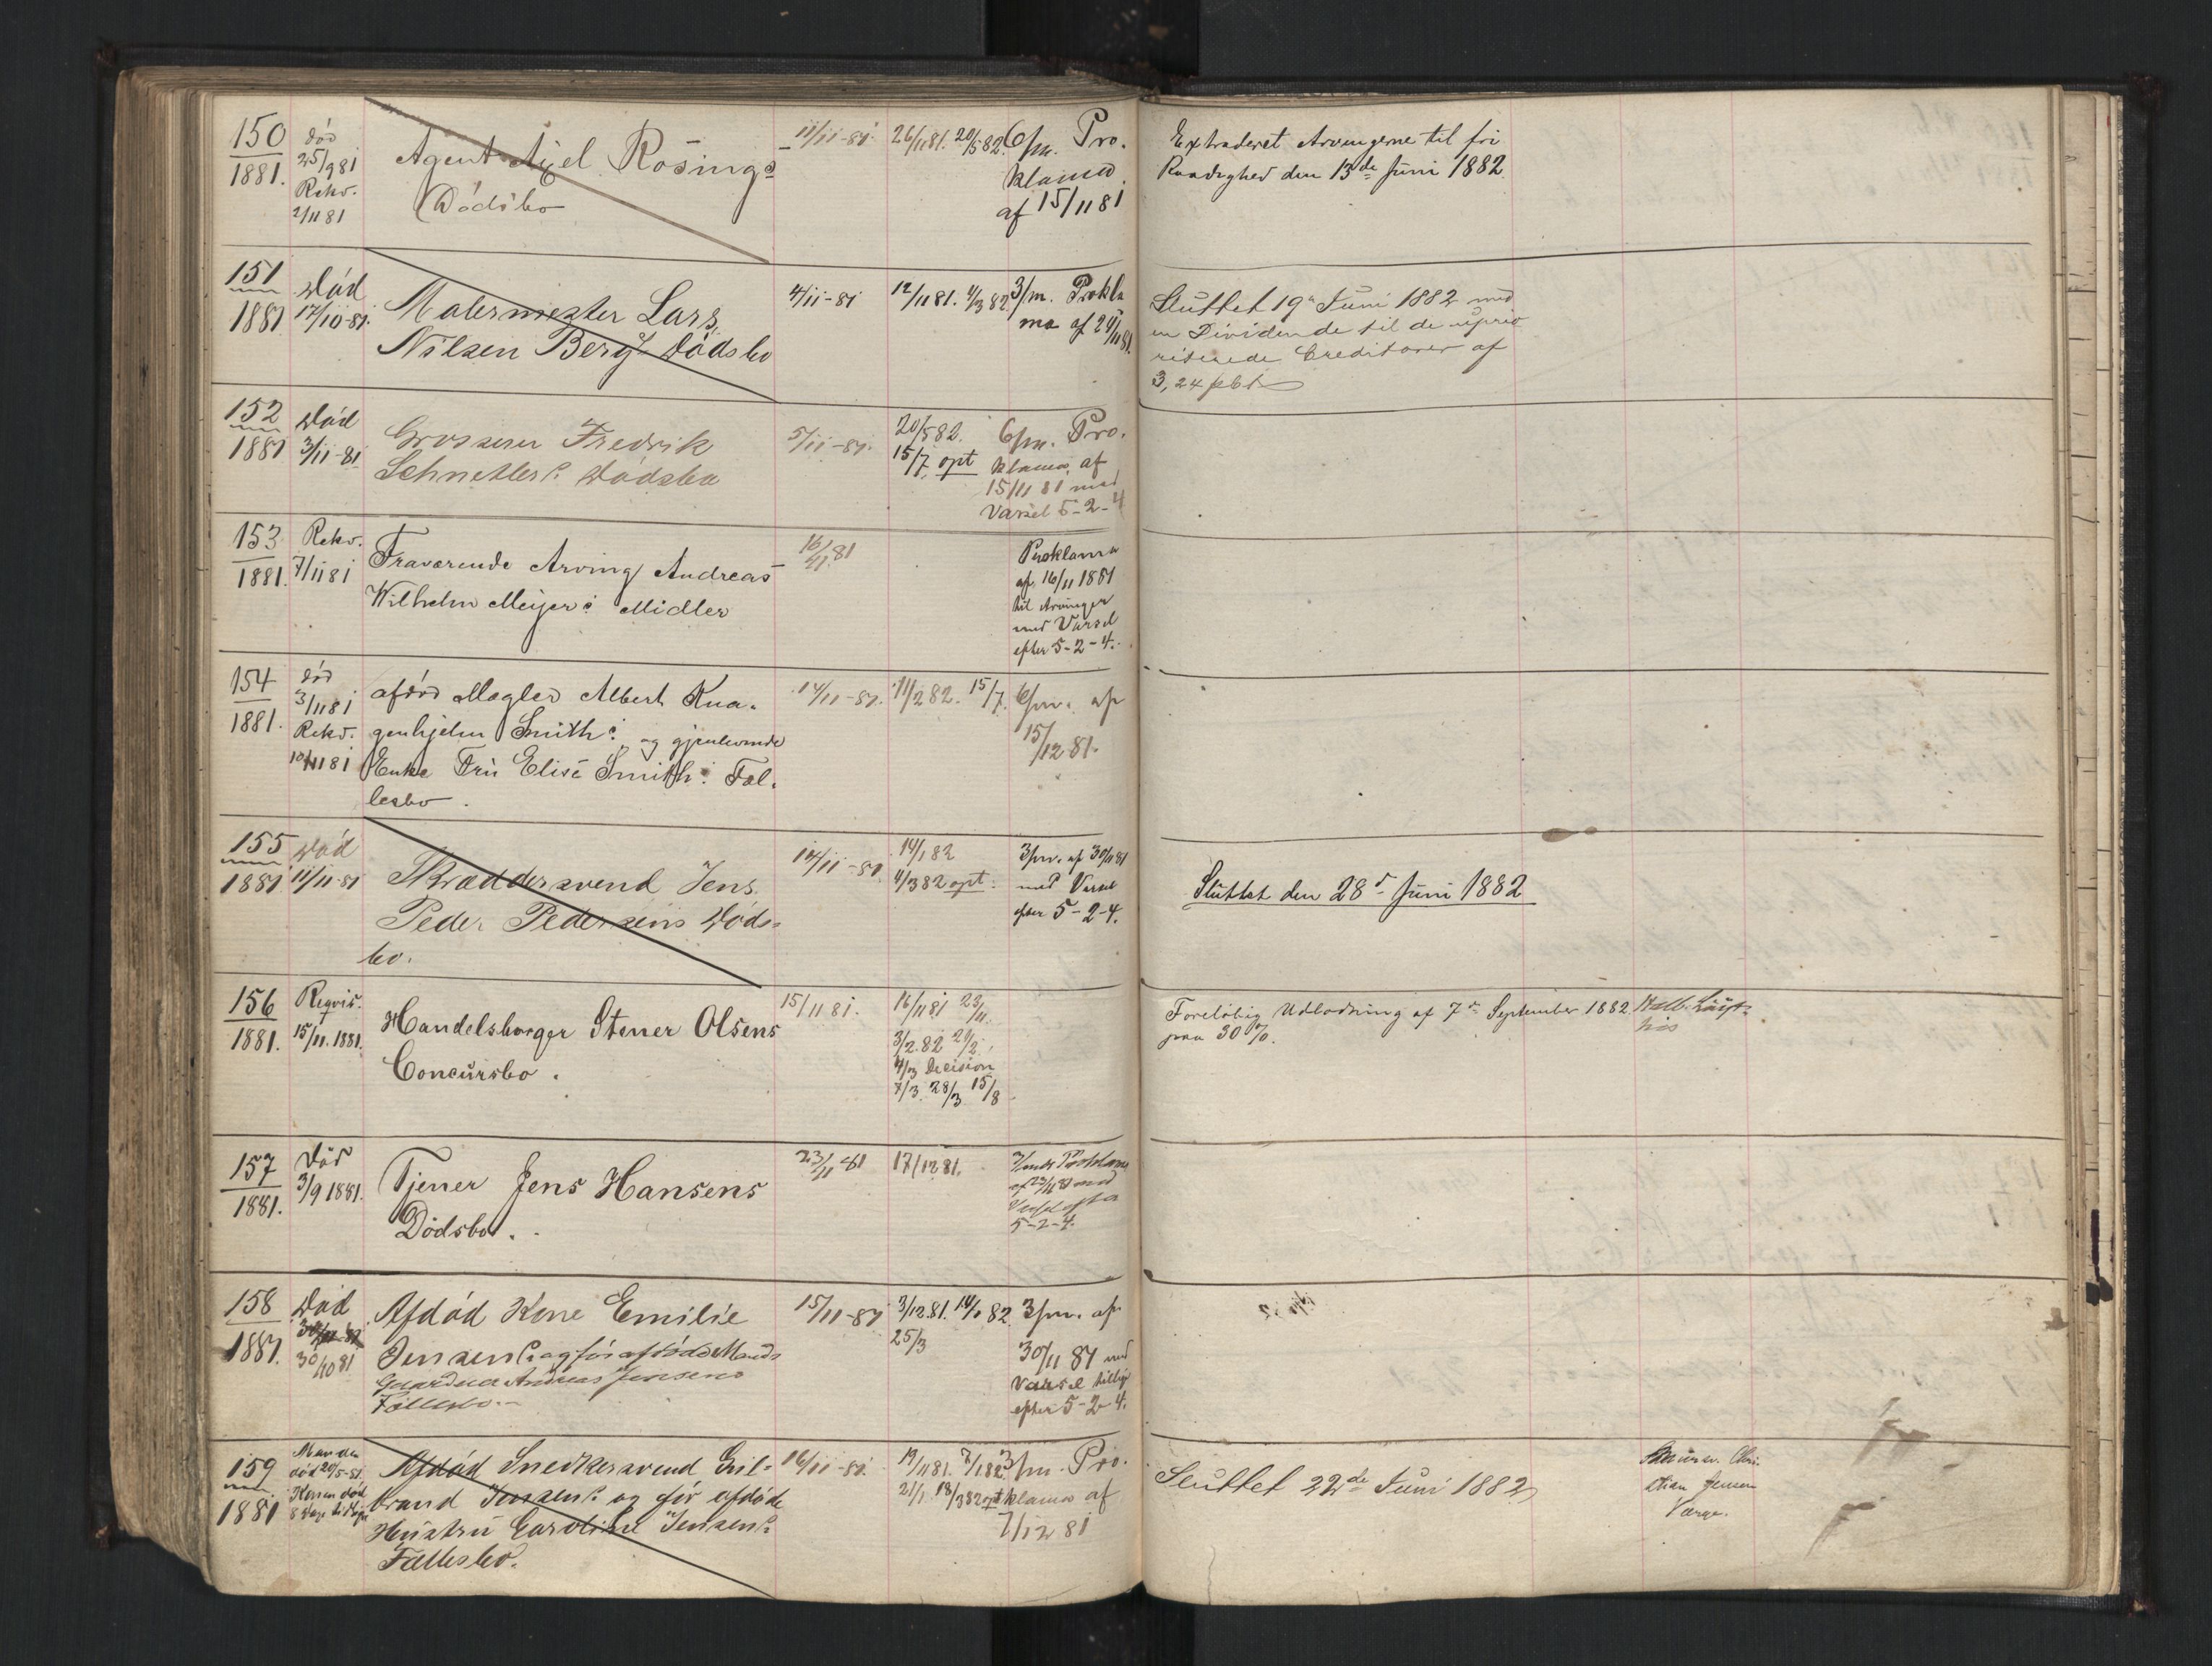 150
1881.
död
25/9 81
Rekv.
2/11 81
Agent Axel Rosings
Dödsbo
11/11-81.
26/11 81. 20/5 82.
6/m. Pro-
klama
af 15/11 81
Extraderet Arvingerne til fri
Raadighed den 13de Juni 1882
151
1881
Död
17/10-81.
Malermester Lars
Nilsen Berg's Dödsbo
4/11-81
12/11 81. 4/3 82
3/m. Prokla
ma af 24/11 81.
Sluttet 19de Juni 1882 med
en Dividende til de uprio
riterede Creditorer af
3,24 pCt
152
1881
Död
3/11-81
Grosserer Fredrik
Schnetlers Dödsbo
5/11-81.
20/5 82.
15/7. opt
6/m. Pro.
klama af
15/11 81 med
Varsel 5-2-4
153
1881.
Rekv.
7/11 81
Fraværende Arving Andreas
Wilhelm Meijers Midler
16/11 81
Proklama
af 16/11 1881
til Arvinger
med Varsel
efter 5-2-4.
154
1881.
död
3/11 81
Rekv.
10/11 81
afdöd Mægler Albert Kna-
genhjelm Smiths og gjenlevende
Enke Fru Elise Smiths Fæl-
lesbo.
14/11-81.
11/2 82. 15/7.
6/m. af
15/12 81.
155
1881
Död
11/11-81
Skræddersvend Jens
Peder Pedersens Döds-
bo.
14/11-81
14/1 82
4/3 82 opt.
3/m. af 30/11 81
med Varsel
efter 5-2-4.
Sluttet den 28de Juni 1882
156
1881.
Reqvis.
15/11. 1881.
Handelsborger Stener Olsens
Concursbo.
15/11 81.
16/11 81 23/11.
3/2. 82 21/2.
4/3 Decision
7/3. 28/3 15/8
Foreløbig Udlodning af 7de September 1882
paa 30 %.
157
1881.
Död
3/9 1881.
Tjener Jens Hansens
Dödsbo.
23/11 81
17/12 81.
3/mdr Proklama
af 23/11 81 med
Varsel efter
5-2-4.
158
1881.
Död
30/10 81
Afdöd Kone Emilie
Jensens og før afdöde Mands
Andreas Jensens
Fællesbo.
15/11-81
3/12 81. 14/1 82
25/3
3/m. af
30/11 81 med
Varsel tillige
efter 5-2-4.
159
1881
Manden
död 20/5-81.
Konen död
Afdöd Snedkersvend Gul-
brand Jensens og før afdöde
Hustru Caroline Jensens
Fællesbo.
16/11-81.
19/11 81. 7/1 82.
21/1. 18/3 82 opt
3/m. Pro-
klama af
7/12 81
Sluttet 22de Juni 1882
Chri-
stian Jensen
Værge.